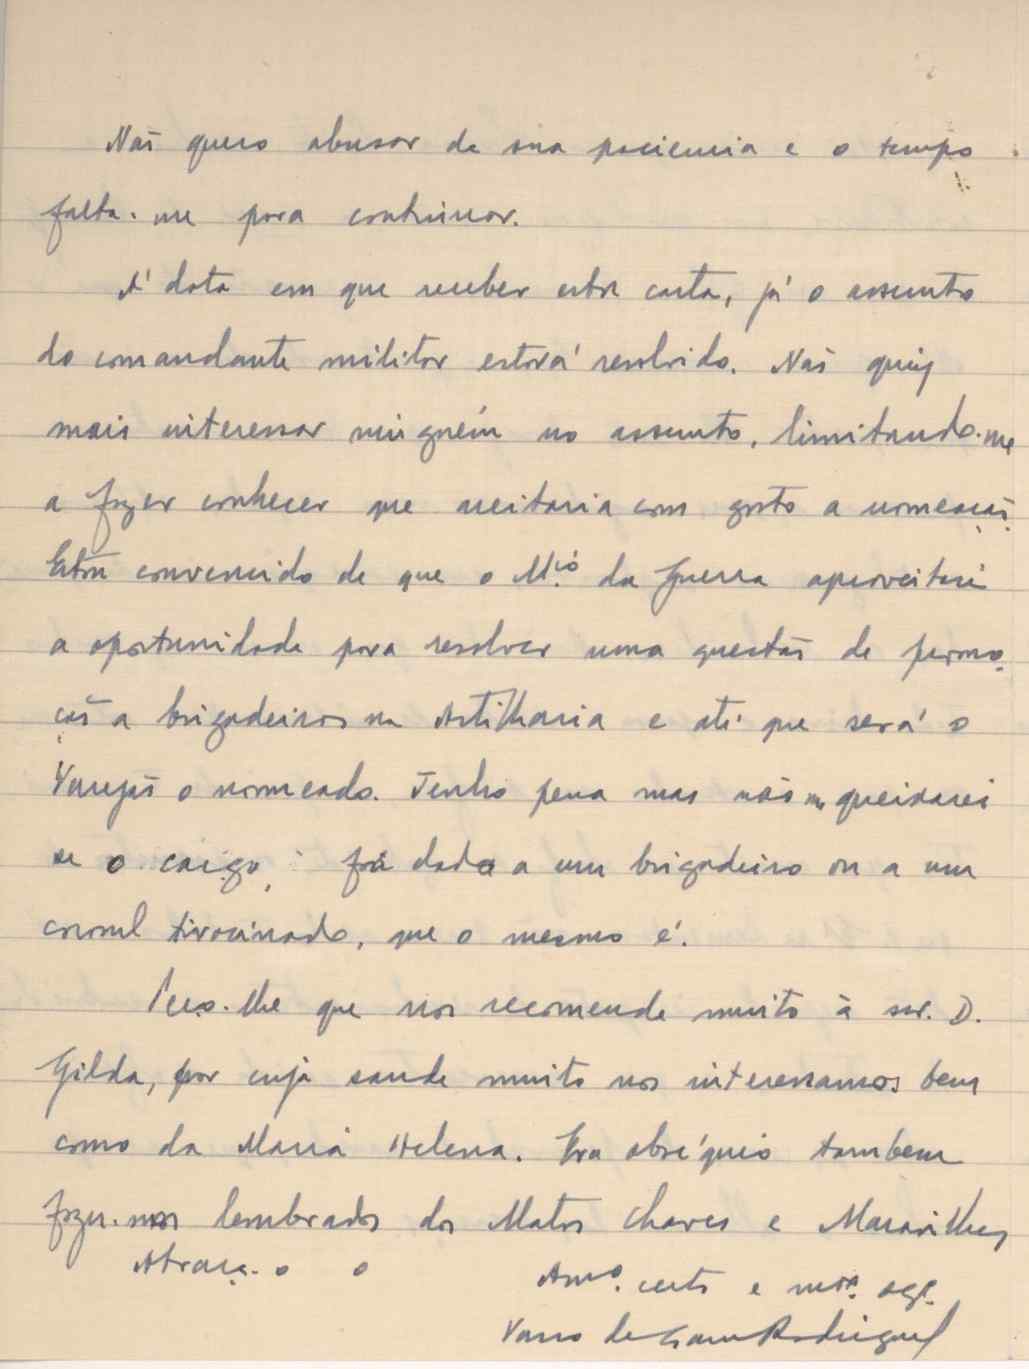 Não quero abusar da sua paciencia e o tempo
falta-me para continuar.
A' data em que receber esta carta, já o assunto
do comandante militar estará resolvido. Não quiz
mais interessar ninguém no assunto, limitando-me
a fazer conhecer que aceitaria com gosto a nomeação.
Estou convencido de que o M.io da Guerra aproveitará
a oportunidade para resolver uma questão de promo-
ção a brigadeiros na Artilharia e até que será o
Varejão o nomeado. Tenho pena mas não me queixarei
se o cargo fôr dado a um brigadeiro ou a um
coronel tirocinado, que o mesmo é.
Peço-lhe que nos recomende muito à snr. D.
Gilda, por cuja saude muito nos interessamos bem
como da Maria Helena. Era obséquio tambem
fazer-nos lembrados dos Matos Chaves e Maravilhas
Abraça-o o
Amo. certo e mto. ago.
Vasco da Gama Rodrigues